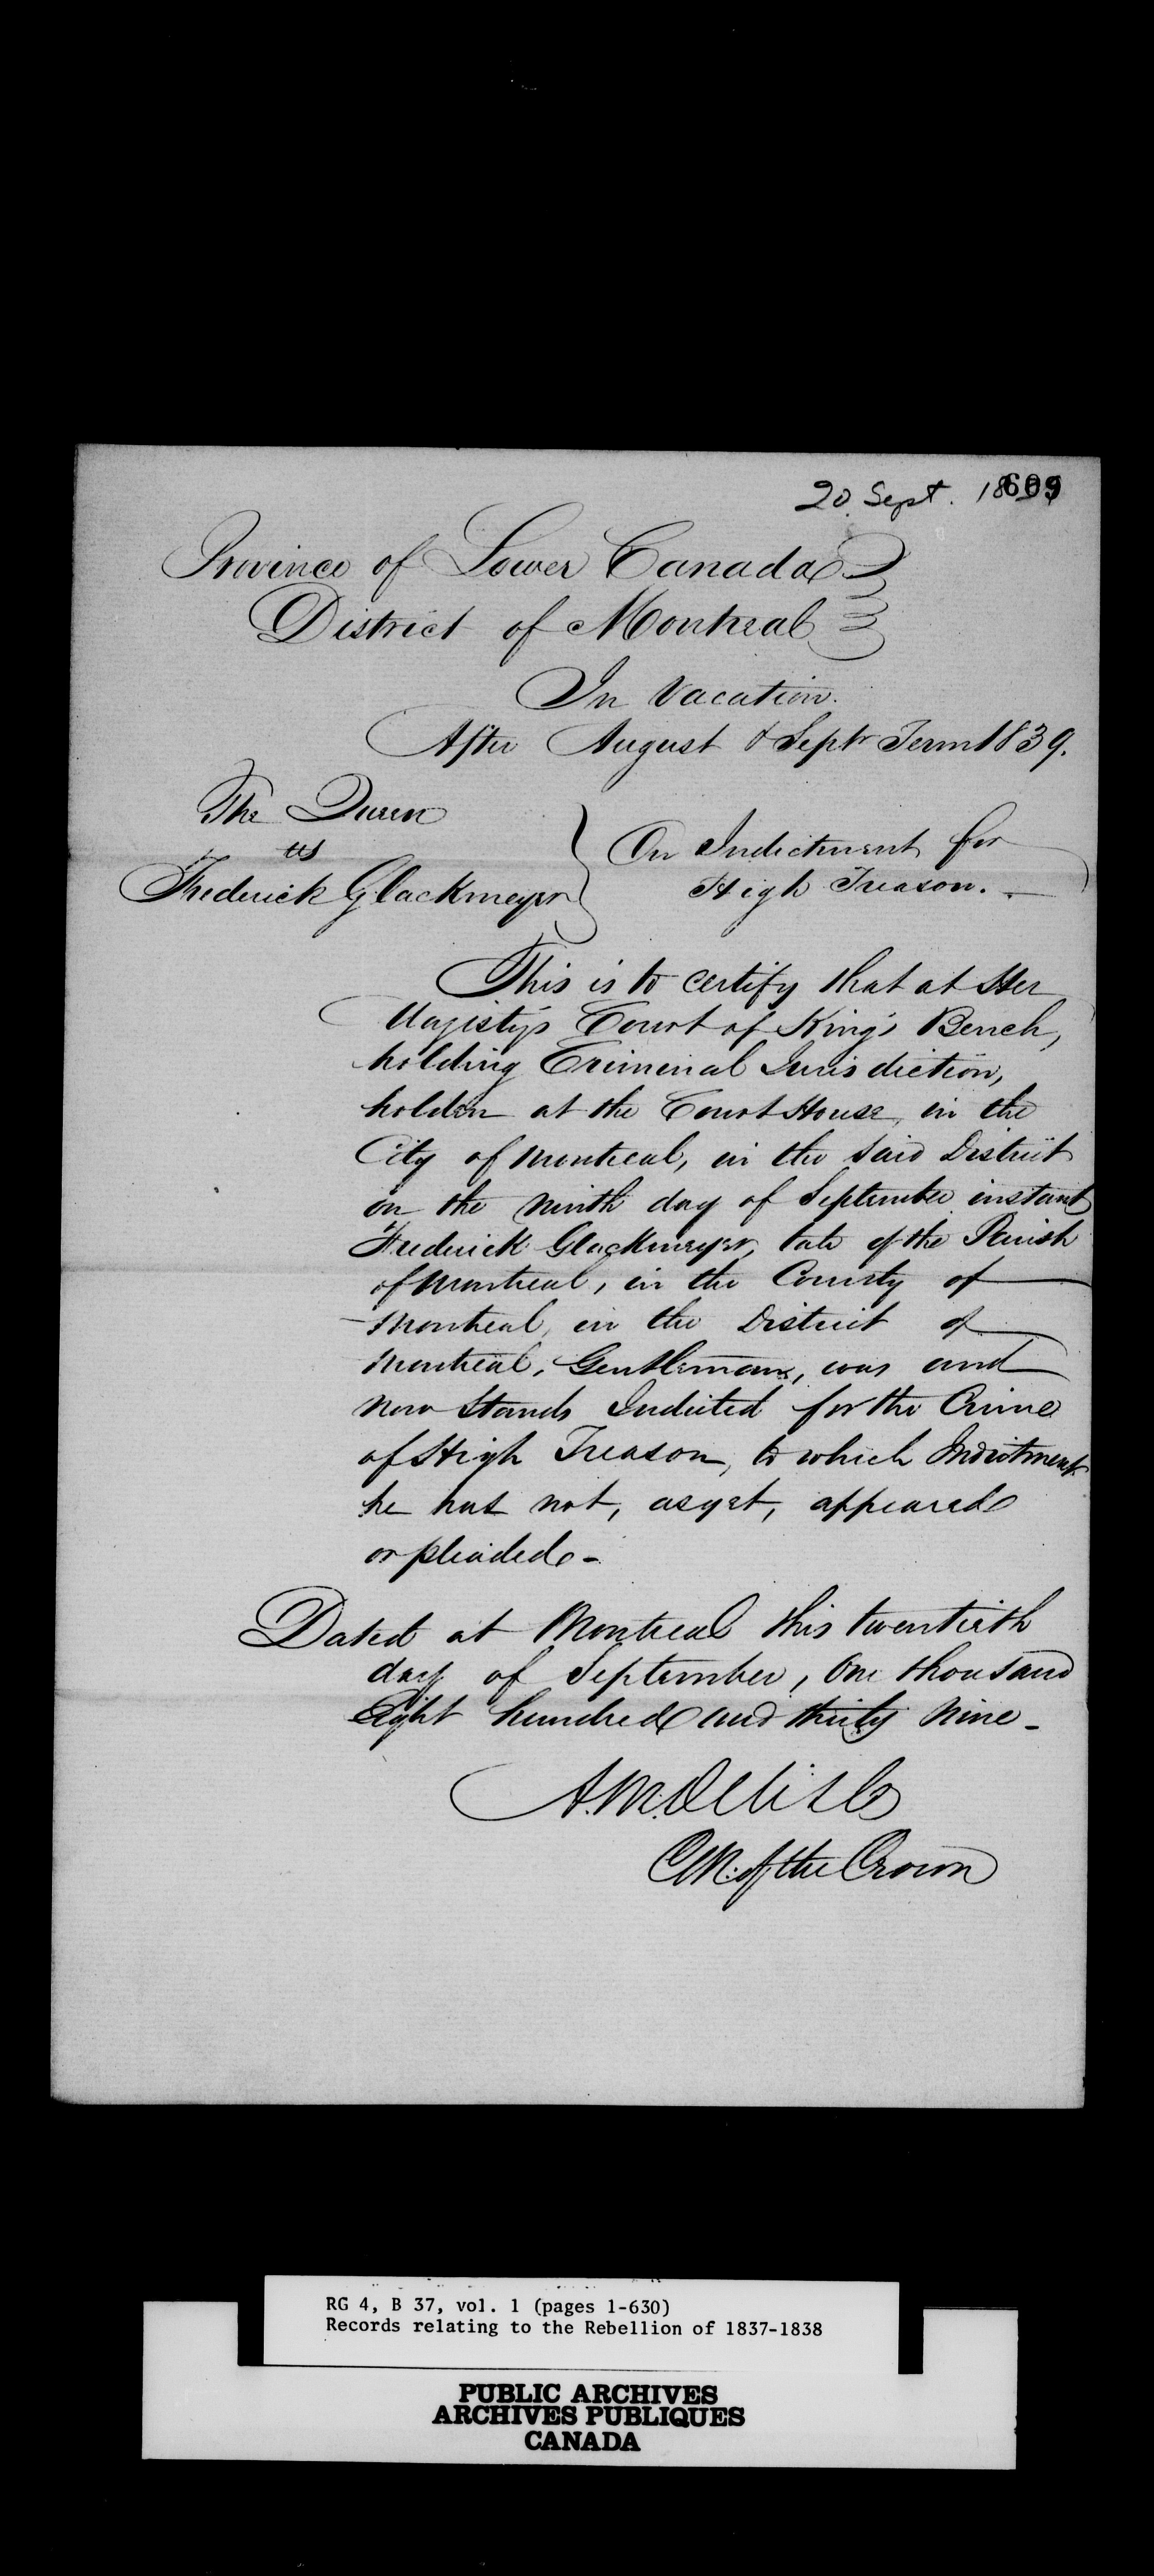 20 Sept. 1839
609
Province of Lower Canada
District of Montreal
In Vacation.
After August & Septr Term 1839.
The Queen
vs
Frederick Glackmeyer
On Indictment for
High Treason.
This is to certify that at Her
Majesty's Court of King's Bench,
holding Criminal Jurisdiction,
holden at the Court House, in the
City of Montreal, in the said District
on the ninth day of September instant
Frederick Glackmeyer, late of the Parish
of Montreal, in the County of
Montreal, in the District of
Montreal, Gentleman, was and
now stands Indicted for the Crime
of High Treason, to which Indictment
he has not, as yet, appeared
or pleaded -
Dated at Montreal this twentieth
day of September, One thousand
Eight hundred and thirty Nine -
A. M. Delisle
Clk. of the Crown
RG 4, B 37, vol. 1 (pages 1-630)
Records relating to the Rebellion of 1837-1838
PUBLIC ARCHIVES
ARCHIVES PUBLIQUES
CANADA